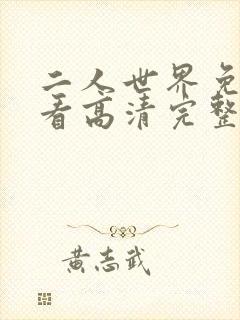 二人世界免
看高清完整
黄志武